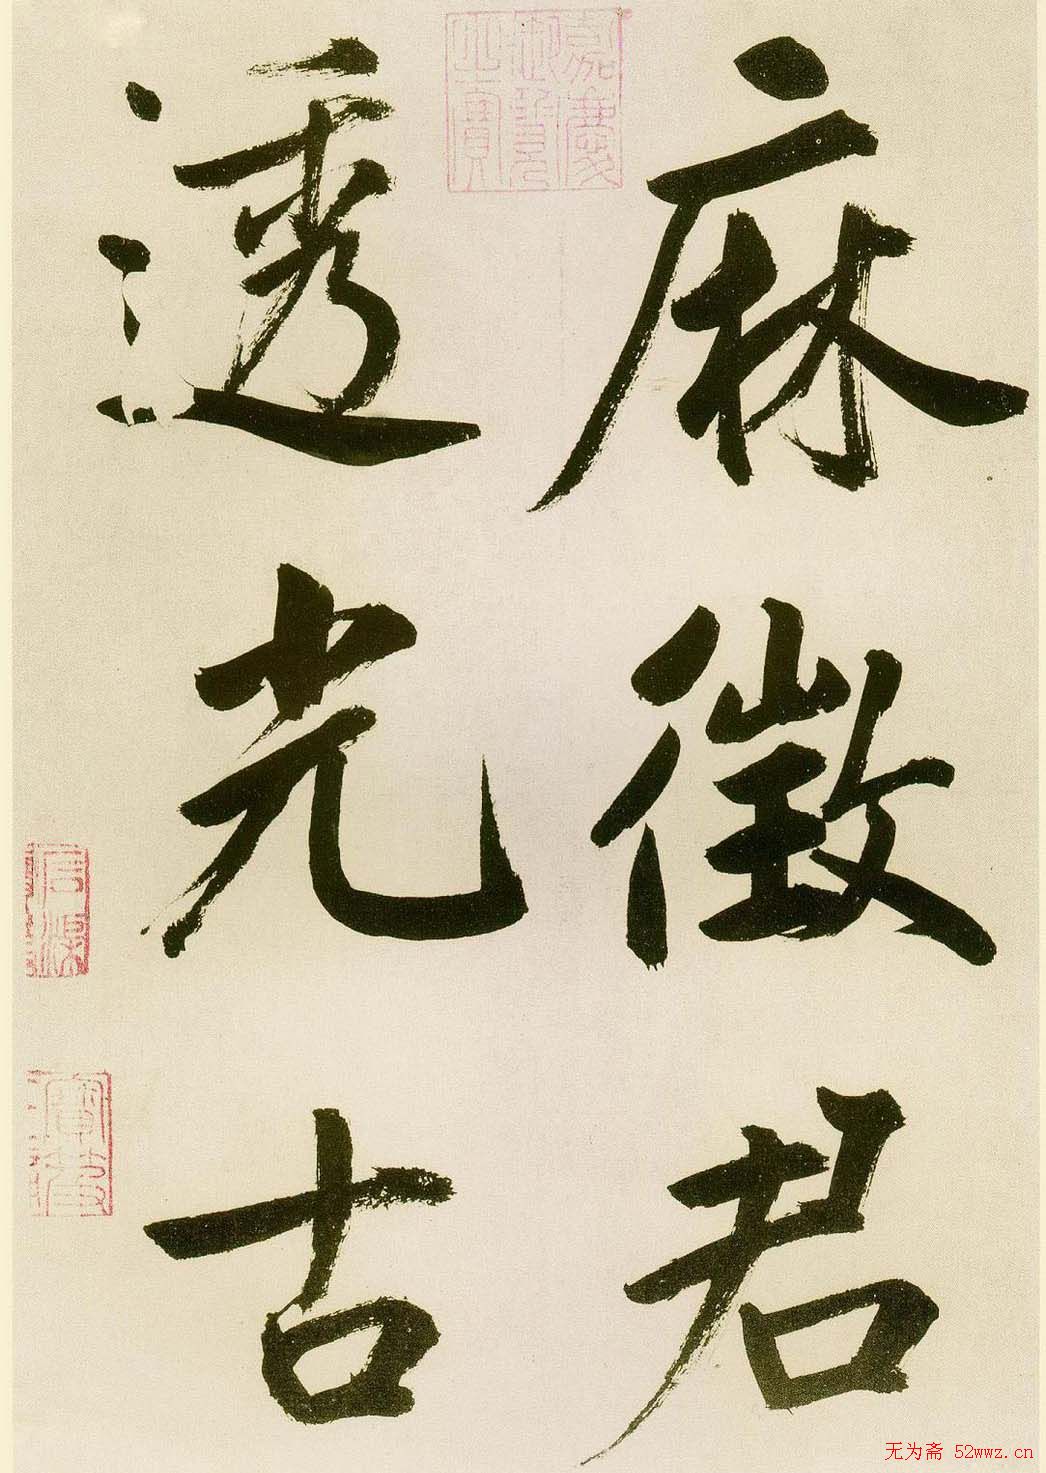 麻徵君
透光古
嘉慶
御覽
之寶
石渠
无为斋 52wwz.cn